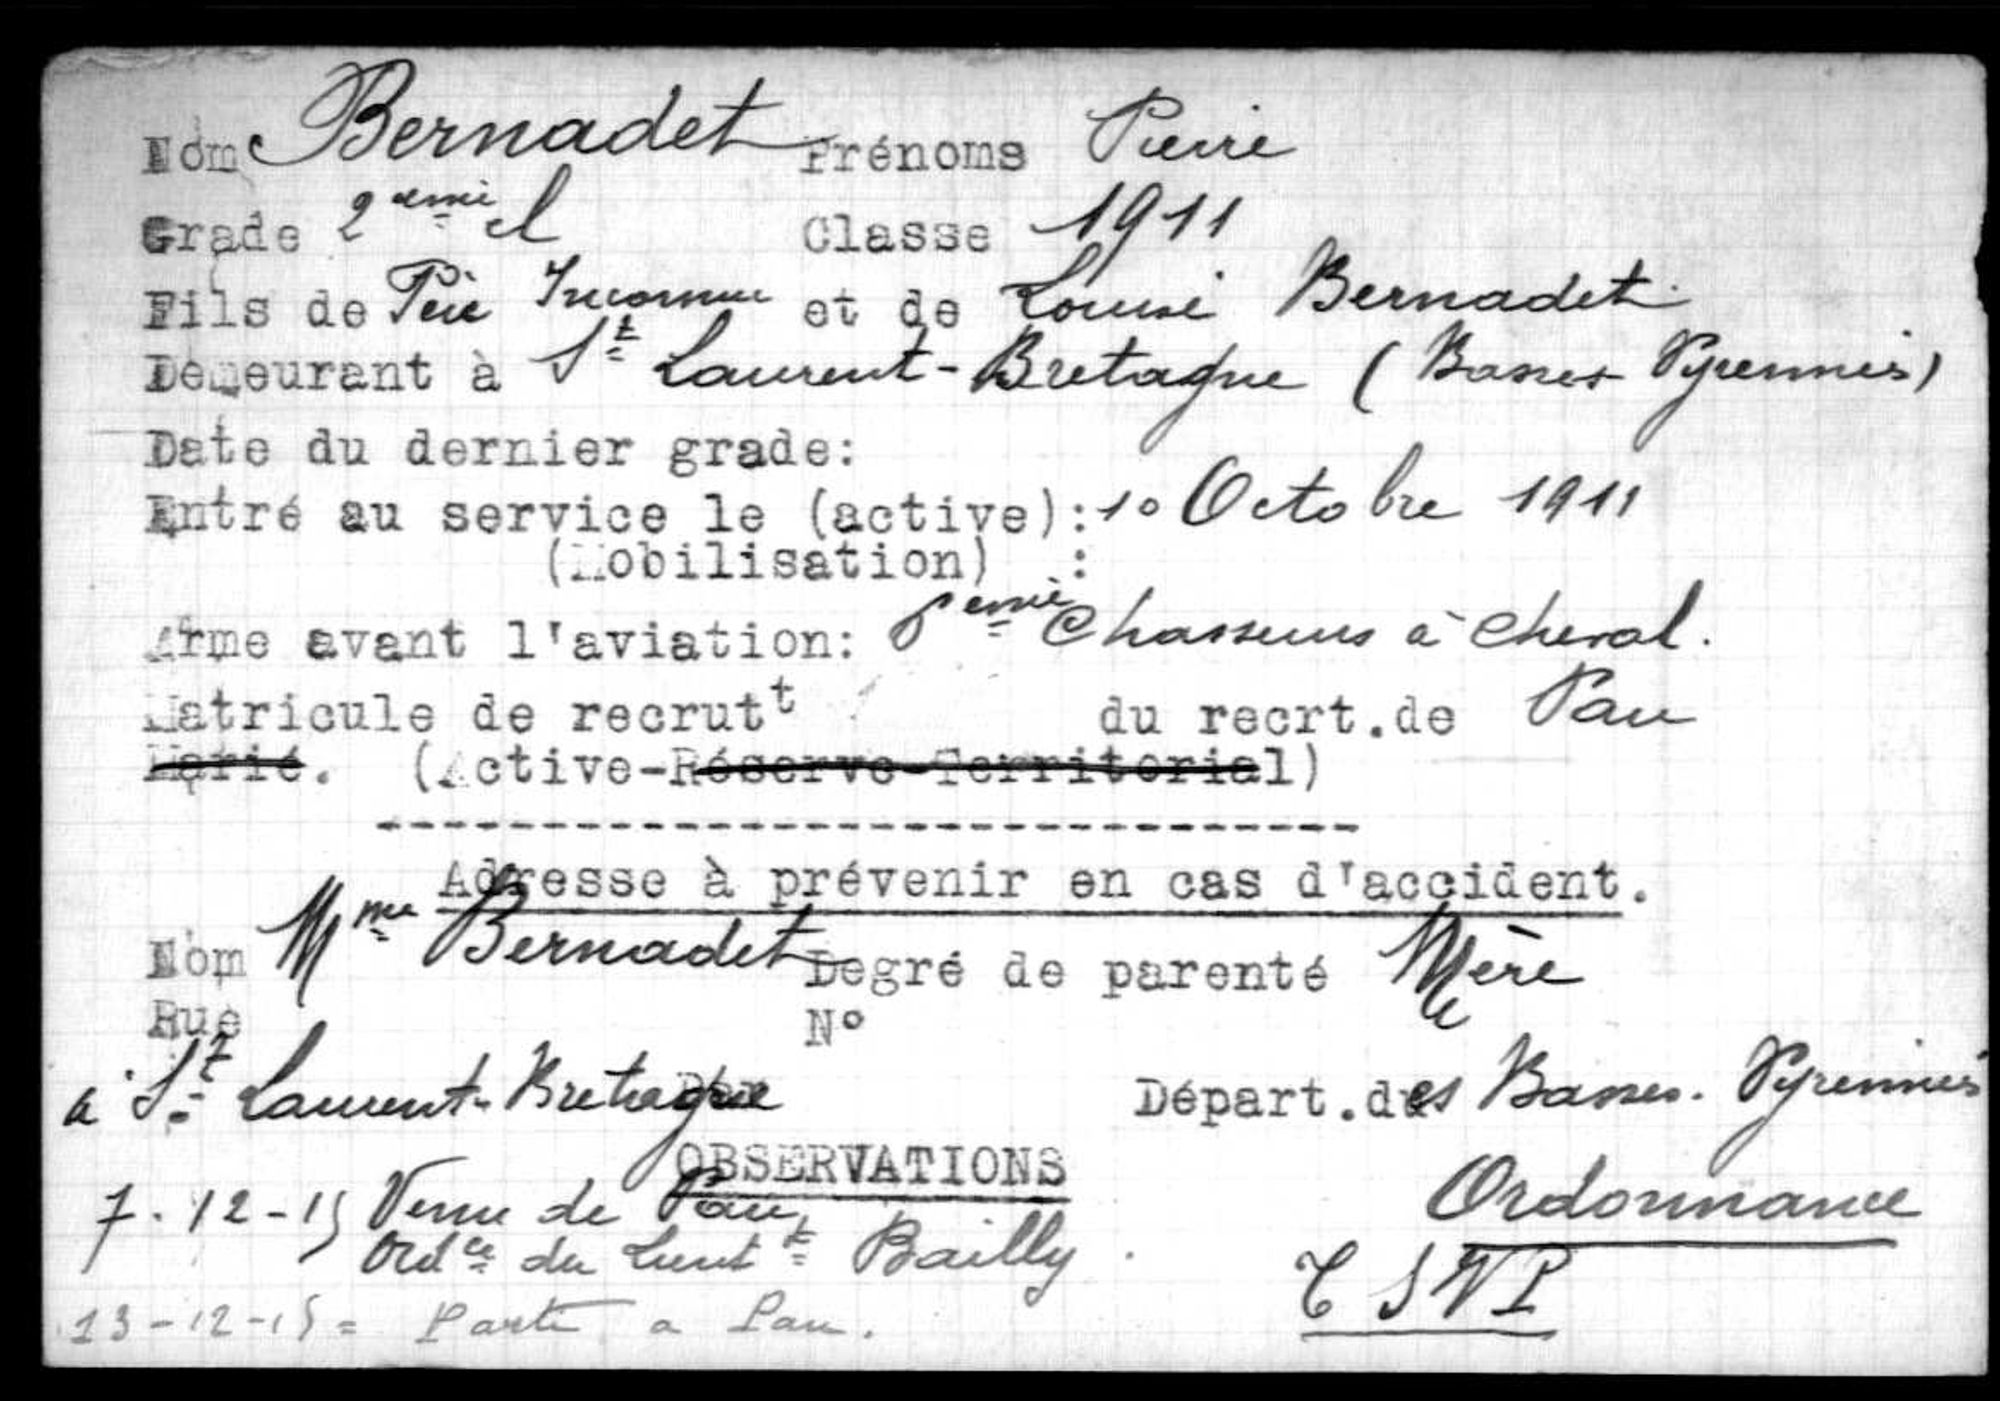 Nom Bernadet Prénoms Pierre
Grade 2ème cl Classe 1911
Fils de Père Inconnu et de Louise Bernadet
Demeurant à St Laurent-Bretagne (Basses Pyrennées)
Date du dernier grade:
Entré au service le (active): 10 Octobre 1911
(Mobilisation) :
Arme avant l'aviation: ème Chasseurs à cheval.
Matricule de recrutt du recrt. de Pau
Marié. (Active-Réserve-Territorial)
Adresse à prévenir en cas d'accident.
Nom Mme Bernadet Degré de parenté Mère
Rue N°
à St Laurent-Bretagne Départ. des Basses-Pyrennées
OBSERVATIONS
7-12-15 Venu de Pau, Ordonnance
Ordce du Lieutt Bailly.
T S V P
13-12-15 = Parti a Pau.